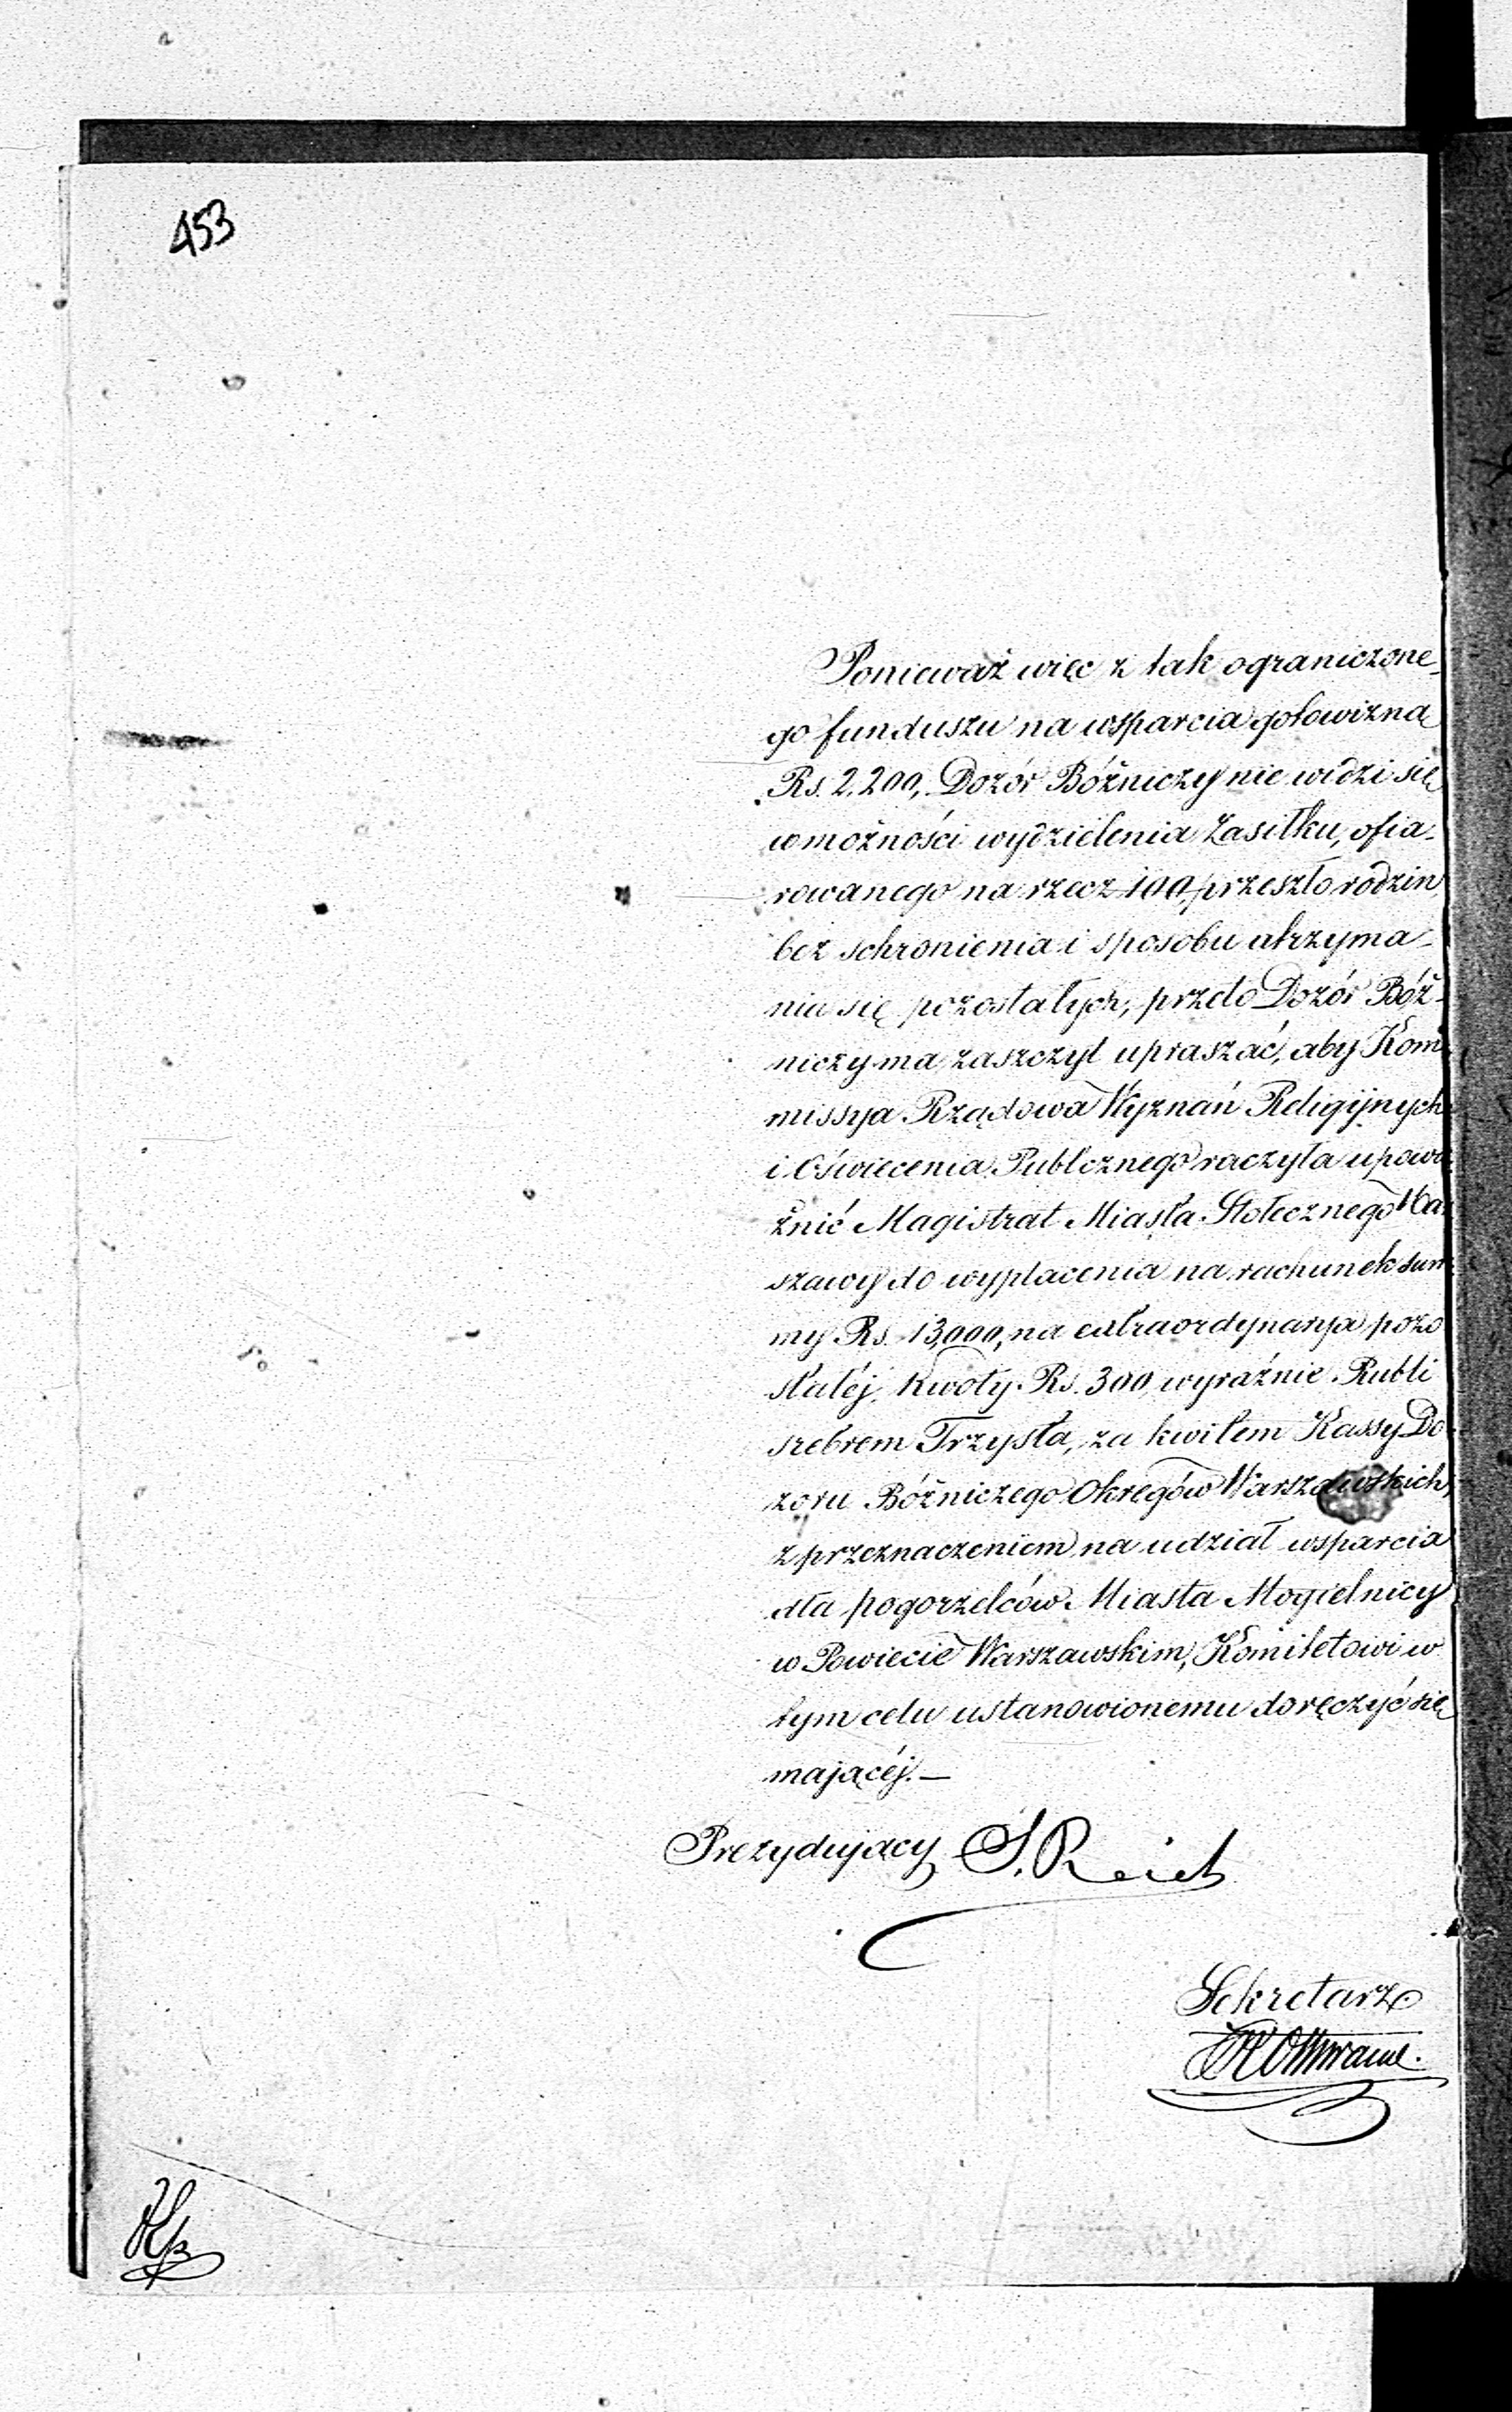 453
Ponieważ więc z tak ograniczone-
go funduszu na wsparcia gotowizną
Rs. 2,200, Dozór Bóżniczy nie widzi się
w możności wydzielenia Zasiłku, ofia-
rowanego na rzecz 100 przeszło rodzin
bez schronienia i sposobu utrzyma-
nia się pozostałych; przeto Dozór Bóż-
niczy ma zaszczyt upraszać, aby Kom-
missya Rządowa Wyznań Religijnych
i Oświecenia Publicznego raczyła upowa-
żnić Magistrat Miasta Stołecznego War-
szawy do wypłacenia na rachunek sum-
my Rs. 13,000, na extraordynarya pozo
stałéj, kwoty Rs. 300, wyraźnie Rubli
srebrem Trzysta, za kwitem Kassy Do-
zoru Bóżniczego Okręgów Warszawskich,
z przeznaczeniem na udział wsparcia
dla pogorzelców Miasta Mogielnicy
w Powiecie Warszawskim, Komitetowi w
tym celu ustanowionemu doręczyć się
mającéj.—
Prezydujący S. Reich
Sekretarz